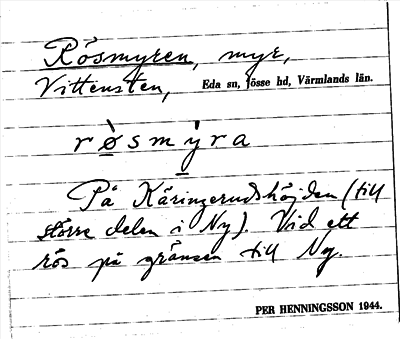 Rösmyren, myr,
Vittensten, Eda sn, Jösse hd, Värmlands län.
rø̀smýra
På Käringerudshöjden (till
större delen i Ny). Vid ett
rös på gränsen till Ny.
PER HENNINGSSON 1944.